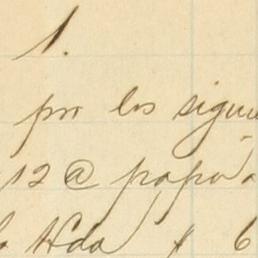 1.
por los siguie
12 @ papa a
la Hda y 6